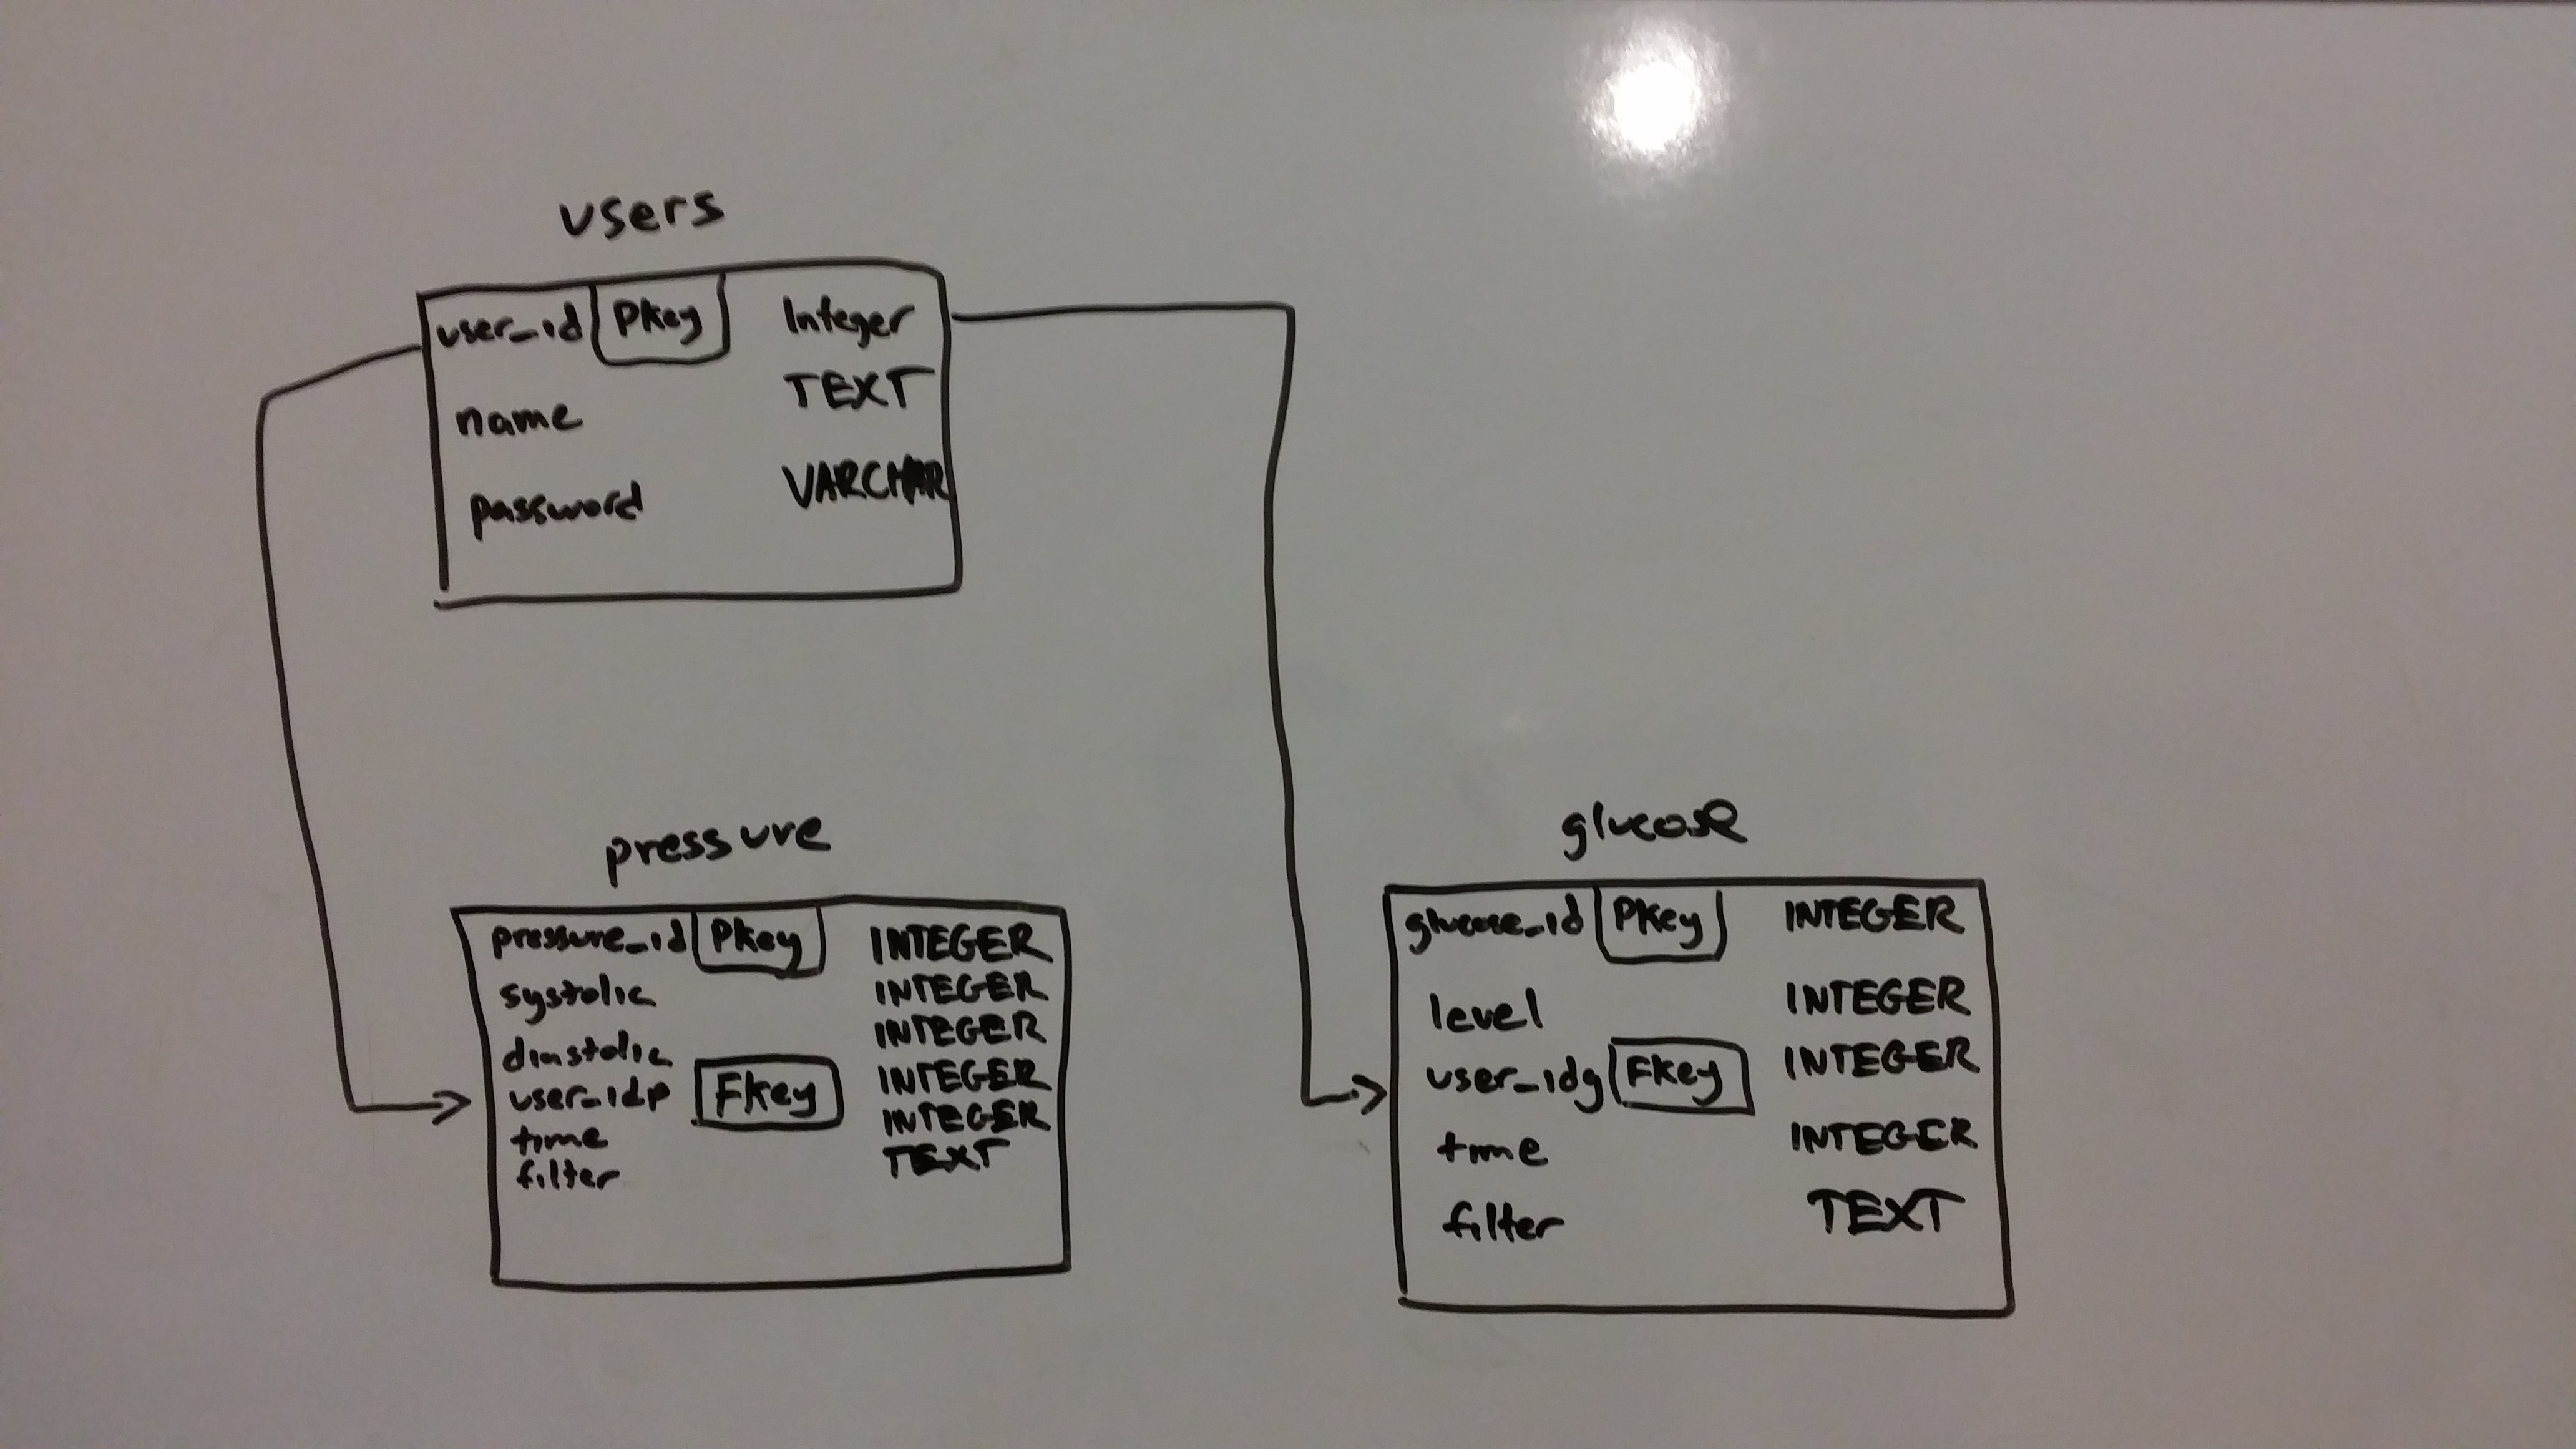 users
user_id Pkey Integer
name TEXT
password VARCHAR
pressure
pressure_id Pkey INTEGER
systolic INTEGER
diastolic INTEGER
user_idp Fkey INTEGER
time INTEGER
filter TEXT
glucose
glucose_id Pkey INTEGER
level INTEGER
user_idg Fkey INTEGER
time INTEGER
filter TEXT